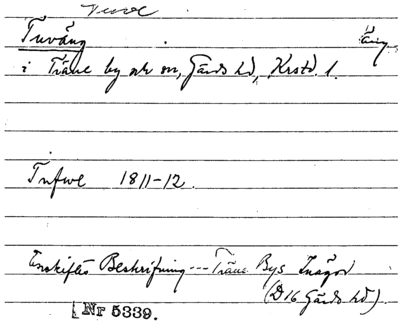 Tuväng äng
i Träne by ok sn, Gärds hd, Krstd. l.
Tufwe 1811-12.
Enskiftes Beskrifning --- Träne Bys Inägor
(D16 Gärds hd).
Nr 5339.